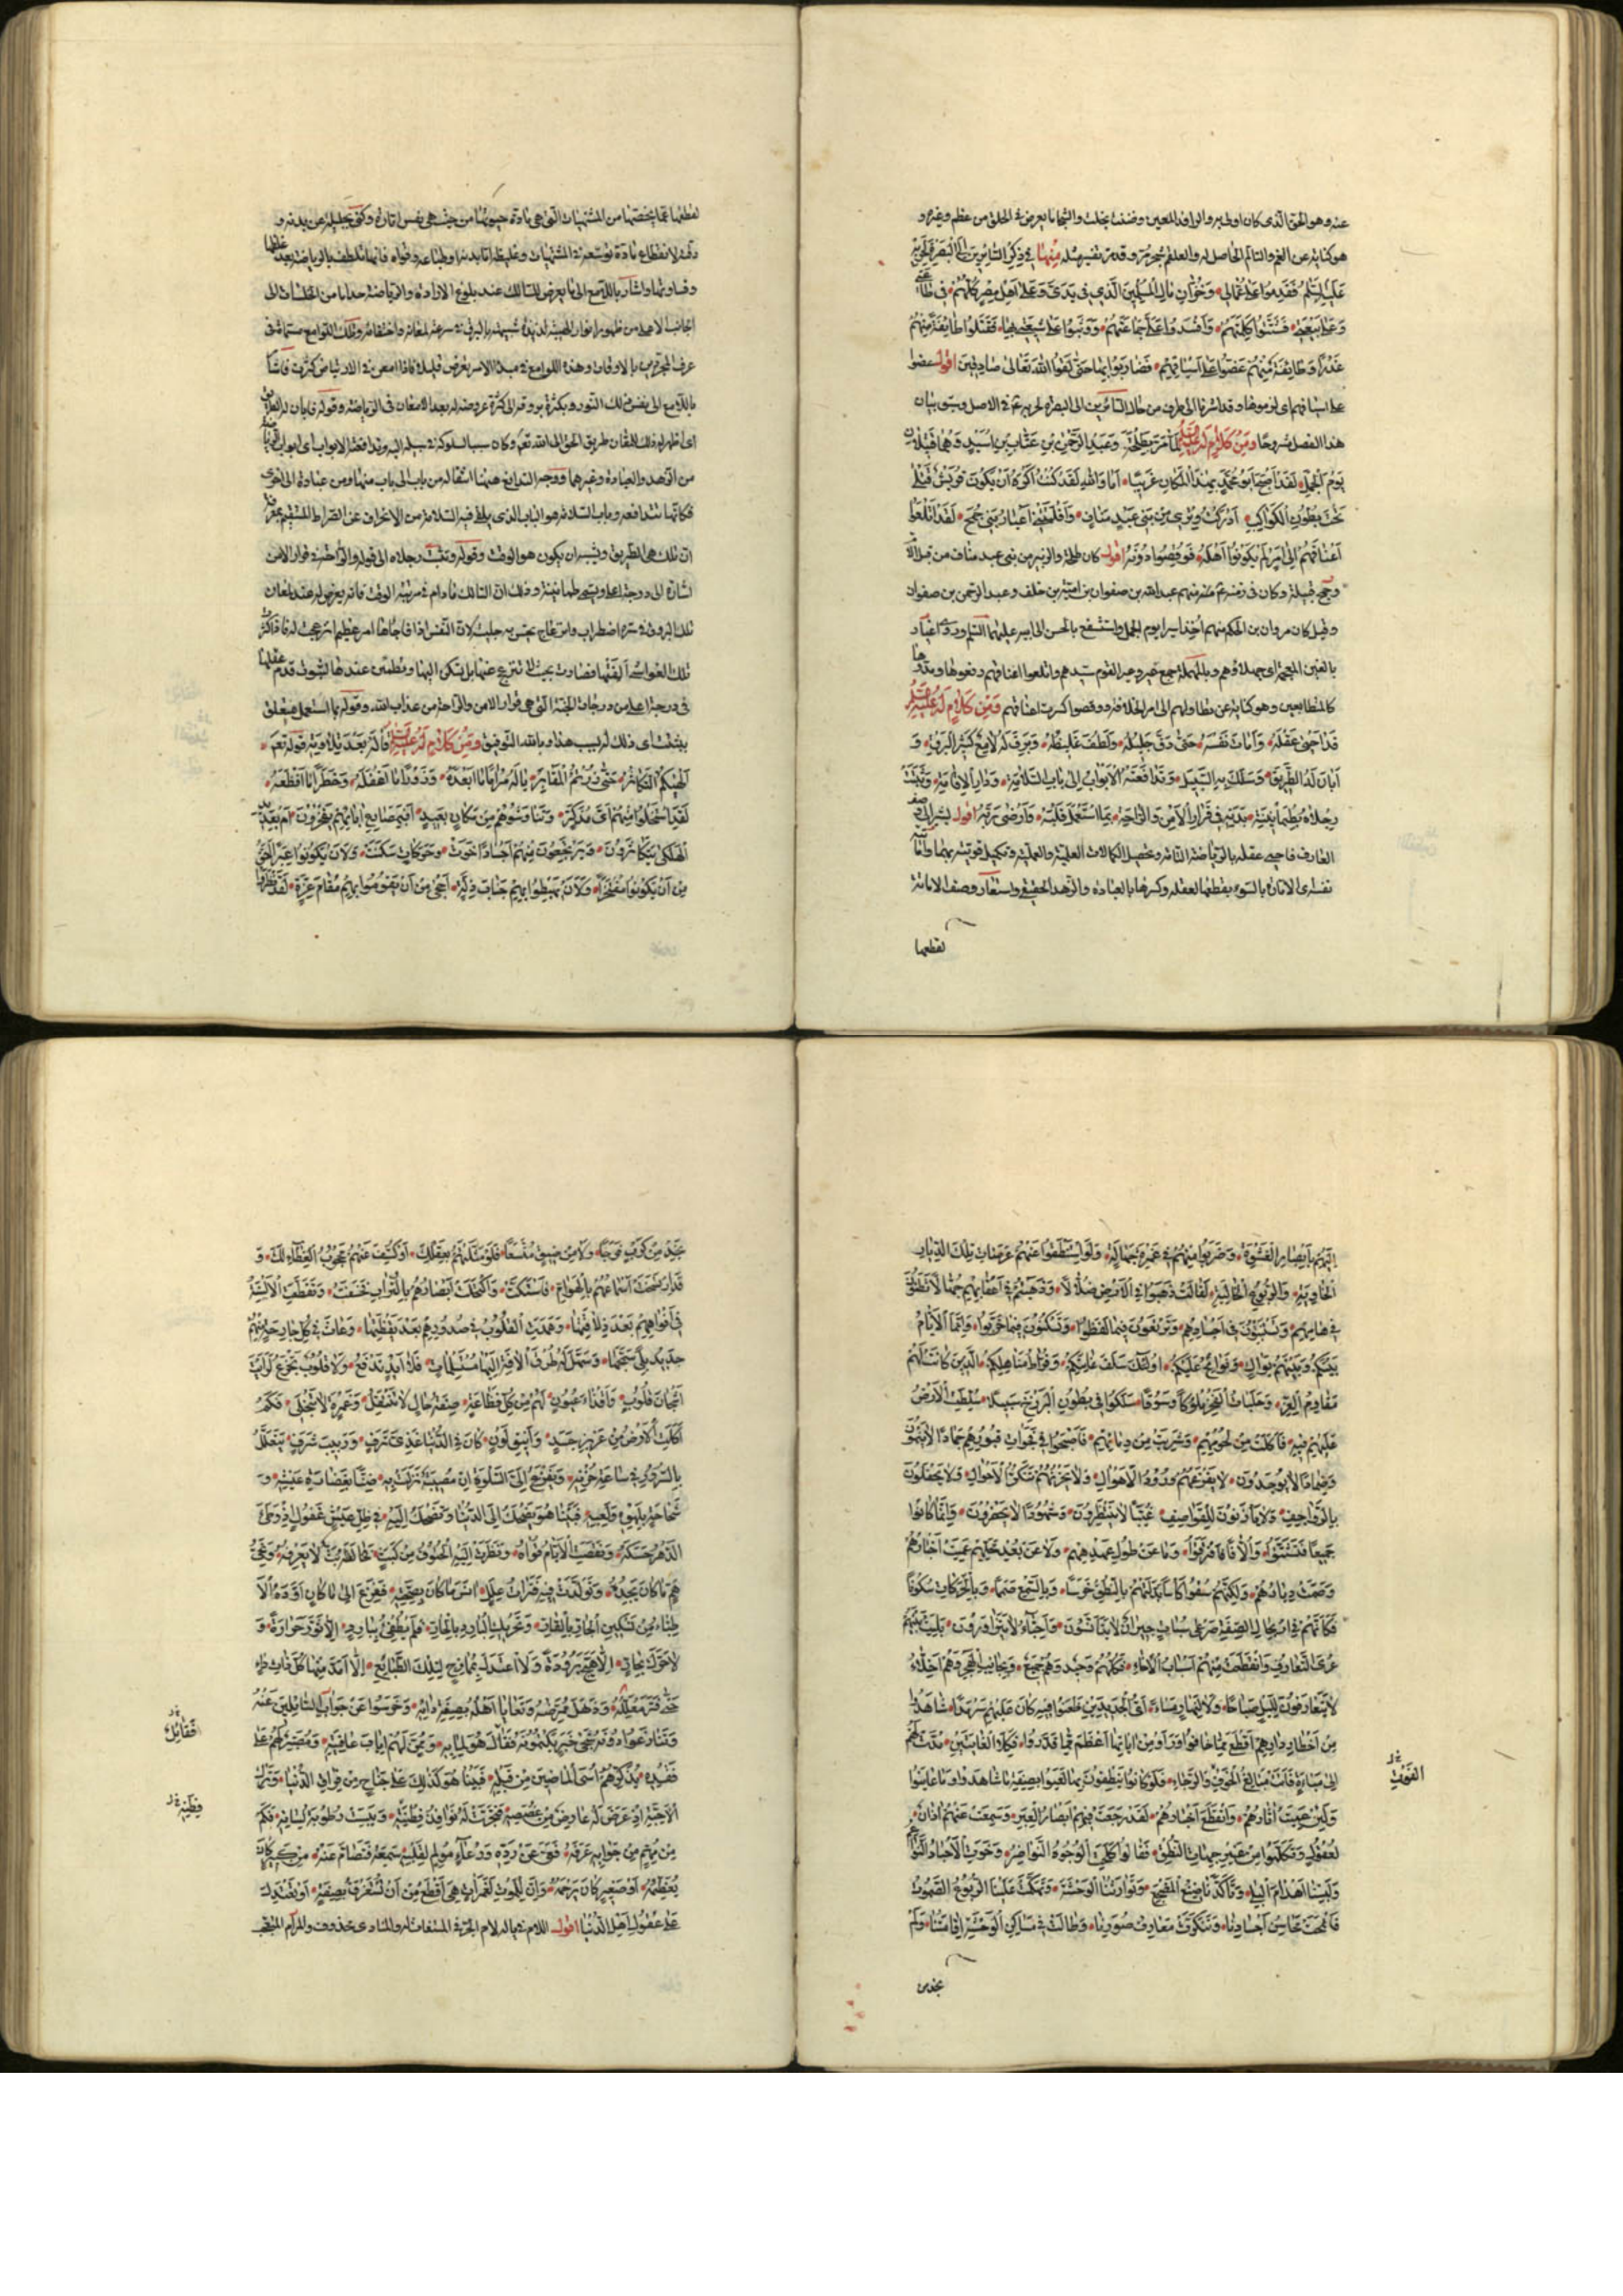 عنه وهو الحق الذى كان او طيره والرافد المعين وضننت بخلت والشجا ما يعرض فى الحلق من عظم وغيره و
هو كناية عن الغم والتالم الحاصل له والعلقم شجر مر وقد مر تفسير مثله مِنْها فِى ذِكْرِ السّائِرينَ اِلَى البَصْرَةِ لِحَرْبِهِ
عَلَيْهِ السَّلَمُ فَقَدِمُوا عَلى عُمّالى وَخُزّانِ مالِ المُسْلِمينَ الَّذى فى يَدَىَّ وَعَلى اَهْلِ مِصْرٍ كُلُّهُمْ فى طاعَتى
وَعَلى بَيْعَتى فَشَتَّتُوا كَلِمَتَهُمْ وَاَفْسَدُوا عَلَىَّ جَماعَتَهُمْ وَوَثَبُوا عَلى شيعَتى فَقَتَلُوا طائِفَةً مِنْهُمْ
غَدْرًا وَطائِفَةٌ مِنْهُمْ عَضُّوا عَلى اَسْيافِهِمْ فَضارَبُوا بِها حَتّى لَقُوا اللهَ تَعالى صادِقينَ اقول عضوا
على اسيافهم اى لزموها وقد اشرنا الى طرف من حال السائرين الى البصرة لحربه فى الاصل وسبق بيان
هذا الفصل مشروحا ومِنْ كَلامٍ لَهُ عليه السلم لَمّا مَرَّ بِطَلْحَةَ وَعَبْدِ الرَّحْمنِ بْنِ عَتّابِ بْنِ اُسَيْدٍ وَهُما قَتيلانِ
يَوْمَ الجَمَلِ لَقَدْ اَصْبَحَ اَبُو مُحَمَّدٍ بِهذَا المَكانِ غَريبًا اَما وَاللهِ لَقَدْ كُنْتُ اَكْرَهُ اَنْ يَكُونَ قُرَيْشٌ قَتْلى
تَحْتَ بُطُونِ الكَواكِبِ اَدْرَكْتُ وِتْرى مِنْ بَنى عَبْدِ مَنافٍ وَاَفْلَتَنى اَعْيارُ بَنى جُمَحَ لَقَدْ اَتْلَعُوا
اَعْناقَهُمْ اِلى اَمْرٍ لَمْ يَكُونُوا اَهْلَهُ فَوُقِصُوا دُونَهُ اقول كان طلحة والزبير من بنى عبد مناف من قبل الام
وجمح قبيلة وكان فى زمنه ع م منهم عبد الله بن صفوان بن امية بن خلف وعبد الرحمن بن صفوان
وقيل كان مروان بن الحكم منهم اخذ اسيرا يوم الجمل واستشفع بالحسن الى ابيه عليهما السلم وروى اغيار
كالمتطاولين وهو كناية عن تطاولهم الى امر الخلافة ووقصوا كسرت اعناقهم وَمِنْ كَلامٍ لَهُ عَلَيْهِ السلم
قَدْ اَحْيى عَقْلَهُ وَاَماتَ نَفْسَهُ حَتّى دَقَّ جَليلُهُ وَلَطُفَ غَليظُهُ وَبَرَقَ لَهُ لامِعٌ كَثيرُ البَرْقِ وَ
اَبانَ لَهُ الطَّريقَ وَسَلَكَ بِهِ السَّبيلَ وَتَدافَعَتْهُ الاَبْوابُ اِلى بابِ السَّلامَةِ وَدارِ الاِقامَةِ وَثَبَتَتْ
رِجْلاهُ بِطُمَأْنينَةِ بَدَنِهِ فى قَرارِ الاَمْنِ وَالرّاحَةِ بِمَا اسْتَعْمَلَ قَلْبَهُ وَاَرْضى رَبَّهُ اقول
العارف فاحيى عقله بالرياضة التامة وتحصيل الكمالات العلمية والعملية وتكميل قوتيه بهما واماتة
نفسه الامارة بالسوء بقطعها لعقله وكسرها بالعبادة والزهد الحقيقى واستعار وصف الاماتة
لقطعها
لقطعها عما يخصها من المشتهيات التى هى مادة حيوتها من حيث هى نفس امارة وكنى بجليله عن بدنه و
دقته لانقطاع مادة توسعه فى المشتهيات وغليظه اما بدنه او طباعه وقواه فانها تلطف بالرياضة بعد غلظها
وقساوتها واشار باللامع الى ما يعرض للسالك عند بلوغ الارادة والرياضة حدا ما من الخلسات الى
الجانب الاعلى من ظهور انوار الهية لذيذة شبيهة بالبرق فى سرعة لمعانه واختفائه وتلك اللوامع مسماة فى
عرف المجردين بالاوقات وهذه اللوامع فى مبدا الامر تعرض قليلا فاذا امعن فى الارتياض كثرت فاشار
باللامع الى نفس ذلك النور وبكثرة بروقه الى كثرة عروضه له بعد الامعان فى الرياضة وقوله فابان له الطريق
اى اظهر له ذلك اللمعان طريق الحق الى الله تعم وكان سببا لسلوكه فى سبيله اليه وتدافعته الابواب اى ابواب
من الزهد والعبادة وغيرهما ووجه التدافع ههنا انتقاله من باب الى باب منها ومن عبادة الى اخرى
فكانها تتدافعه وباب السلامة هو الباب الذى يلقى فيه السلامة من الانحراف عن الصراط المستقيم بمعرفة
ان تلك هى الطريق ويشبه ان يكون هو الوقت وقوله وثبتت رجلاه الى قوله والراحة فى قرار الامن
اشارة الى درجة اعلى ويسمى طمانينة وذلك ان السالك ما دام فى مرتبة الوقت فانه يعرض له عند لمعان
تلك البروق فى سره اضطراب وانزعاج يحس به جليسه لان النفس اذا فاجاها امر عظيم انزعجت له فاذا كثرت
تلك الغواشى الفتها فصارت بحيث لا تنزعج عنها بل تسكن اليها وتطمئن عندها لثبوت قدم عقلها
فى درجة اعلى من درجات الجنة التى هى قرار الامن والراحة من عذاب الله وقوله بما استعمل متعلق
بثبتت اى ذلك لسبب هذا وبالله التوفيق وَمِنْ كَلامٍ لَهُ عَلَيْهِ السلم قالَهُ بَعْدَ تِلاوَتِهِ قوله تعم
اَلْهيكُمُ التَّكاثُرُ حَتّى زُرْتُمُ المَقابِرَ يا لَهُ مَرامًا ما اَبْعَدَهُ وَزَوْرًا ما اَغْفَلَهُ وَخَطَرًا ما اَفْظَعَهُ
لَقَدِ اسْتَخْلَوْا مِنْهُمْ اَىَّ مُدَّكِرٍ وَتَناوَشُوهُمْ مِنْ مَكانٍ بَعيدٍ اَفَبِمَصارِعِ ابائِهِمْ يَفْخَرُونَ اَمْ بِعَديدِ
الهَلْكى يَتَكاثَرُونَ يَرْتَجِعُونَ مِنْهُمْ اَجْسادًا خَوَتْ وَحَرَكاتٍ سَكَنَتْ وَلاَنْ يَكُونُوا عِبَرًا اَحَقُّ
مِنْ اَنْ يَكُونُوا مُفْتَخَرًا وَلاَنْ يَهْبِطُوا بِهِمْ جَنابَ ذِلَّةٍ اَحْجى مِنْ اَنْ يَقُومُوا بِهِمْ مَقامَ عِزَّةٍ لَقَدْ نَظَرُوا
اِلَيْهِمْ بِاَبْصارِ العَشْوَةِ وَضَرَبُوا مِنْهُمْ فى غَمْرَةِ جَهالَةٍ وَلَوِ اسْتَنْطَقُوا عَنْهُمْ عَرَصاتِ تِلْكَ الدِّيارِ
الخاوِيَةِ وَالرُّبُوعِ الخالِيَةِ لَقالَتْ ذَهَبُوا فِى الاَرْضِ ضُلّالاً وَذَهَبْتُمْ فى اَعْقابِهِمْ جُهّالاً تَطَؤُنَ
فى هامِهِمْ وَتَسْتَنْبِتُونَ فى اَجْسادِهِمْ وَتَرْتَعُونَ فيما لَفَظُوا وَتَسْكُنُونَ فيما خَرَّبُوا وَاِنَّمَا الاَيّامُ
بَيْنَكُمْ وَبَيْنَهُمْ بَواكٍ وَنَوائِحُ عَلَيْكُمْ اُولئِكَ سَلَفُ غايَتِكُمْ وَفُرّاطُ مَناهِلِكُمُ الَّذينَ كانَتْ لَهُمْ
مَقاوِمُ العِزِّ وَحَلَباتُ الفَخْرِ مُلُوكًا وَسُوَقًا سَلَكُوا فى بُطُونِ البَرْزَخِ سَبيلاً سُلِّطَتِ الاَرْضُ
عَلَيْهِمْ فيهِ فَاَكَلَتْ مِنْ لُحُومِهِمْ وَشَرِبَتْ مِنْ دِمائِهِمْ فَاَصْبَحُوا فى فَجَواتِ قُبُورِهِمْ جَمادًا لا يَنْمُونَ
وَضِمارًا لا يُوجَدُونَ لا يُفْزِعُهُمْ وُرُودُ الاَهْوالِ وَلا يَحْزُنُهُمْ تَنَكُّرُ الاَحْوالِ وَلا يَحْفِلُونَ
بِالرَّواجِفِ وَلا يَأْذَنُونَ لِلْقَواصِفِ غُيَّبًا لا يُنْتَظَرُونَ وَشُهُودًا لا يَحْضُرُونَ وَاِنَّما كانُوا
جَميعًا فَتَشَتَّتُوا وَاُلاّفًا فَافْتَرَقُوا وَما عَنْ طُولِ عَهْدِهِمْ وَلا عَنْ بُعْدِ مَحَلِّهِمْ عَمِيَتْ اَخْبارُهُمْ
وَصَمَّتْ دِيارُهُمْ وَلكِنَّهُمْ سُقُوا كَأْسًا بَدَّلَتْهُمْ بِالنُّطْقِ خَرَسًا وَبِالسَّمْعِ صَمَمًا وَبِالحَرَكاتِ سُكُونًا
فَكَاَنَّهُمْ فِى ارْتِجالِ الصِّفَةِ صَرْعى سُباتٍ جيرانٌ لا يَتَانَسُونَ وَاَحِبّاءُ لا يَتَزاوَرُونَ بَلِيَتْ بَيْنَهُمْ
عُرَى التَّعارُفِ وَانْقَطَعَتْ مِنْهُمْ اَسْبابُ الاِخاءِ فَكُلُّهُمْ وَحيدٌ وَهُمْ جَميعٌ وَبِجانِبِ الهَجْرِ وَهُمْ اَخِلّاءُ
لا يَتَعارَفُونَ لِلَيْلٍ صَباحًا وَلا لِنَهارٍ مَساءً اَىُّ الجَديدَيْنِ ظَعَنُوا فيهِ كانَ عَلَيْهِمْ سَرْمَدًا شاهَدُوا
مِنْ اَخْطارِ دارِهِمْ اَفْظَعَ مِمّا خافُوا وَرَاَوْا مِنْ اياتِها اَعْظَمَ مِمّا قَدَّرُوا فَكِلَا الغايَتَيْنِ مُدَّتْ لَهُمْ
اِلى مَباءَةٍ فاتَتْ مَبالِغَ الخَوْفِ وَالرَّجاءِ فَلَوْ كانُوا يَنْطِقُونَ بِها لَعَيُوا بِصِفَةِ ما شاهَدُوا وَما عايَنُوا
الفَوْتِ
وَلَئِنْ عَمِيَتْ اثارُهُمْ وَانْقَطَعَ اَخْبارُهُمْ لَقَدْ رَجَعَتْ فيهِمْ اَبْصارُ العِبَرِ وَسَمِعَتْ عَنْهُمْ اذانُ
العُقُولِ وَتَكَلَّمُوا مِنْ غَيْرِ جِهاتِ النُّطْقِ فَقالُوا كَلَحَتِ الوُجُوهُ النَّواضِرُ وَخَوَتِ الاَجْسادُ النَّواعِمُ
وَلَبِسْنا اَهْدامَ البِلى وَتَكاءَدَنا ضيقُ المَضْجَعِ وَتَوارَثْنَا الوَحْشَةَ وَتَهَكَّمَتْ عَلَيْنَا الرُّبُوعُ الصُّمُوتُ
فَانْمَحَتْ مَحاسِنُ اَجْسادِنا وَتَنَكَّرَتْ مَعارِفُ صُوَرِنا وَطالَتْ فى مَساكِنِ الوَحْشَةِ اِقامَتُنا وَلَمْ
نجد من
نَجِدْ مِنْ كَرْبٍ فَرَجًا وَلا مِنْ ضيقٍ مُتَّسَعًا فَلَوْ مَثَّلْتَهُمْ بِعَقْلِكَ اَوْ كُشِفَ عَنْهُمْ مَحْجُوبُ الغِطاءِ لَكَ وَ
قَدِ ارْتَسَخَتْ اَسْماعُهُمْ بِالهَوامِّ فَاسْتَكَّتْ وَاكْتَحَلَتْ اَبْصارُهُمْ بِالتُّرابِ فَخَسَفَتْ وَتَقَطَّعَتِ الاَلْسِنَةُ
فى اَفْواهِهِمْ بَعْدَ ذَلاقَتِها وَهَمَدَتِ القُلُوبُ فى صُدُورِهِمْ بَعْدَ يَقَظَتِها وَعاثَ فى كُلِّ جارِحَةٍ مِنْهُمْ
جَديدُ بِلىً سَمَّجَها وَسَهَّلَ طُرُقَ الافَةِ اِلَيْها مُسْتَسْلِماتٍ فَلا اَيْدٍ تَدْفَعُ وَلا قُلُوبٌ تَجْزَعُ لَرَاَيْتَ
اَشْجانَ قُلُوبٍ وَاَقْذاءَ عُيُونٍ لَهُمْ مِنْ كُلِّ فَظاعَةٍ صِفَةُ حالٍ لا تَنْتَقِلُ وَغَمْرَةٌ لا تَنْجَلى فَكَمْ
اَكَلَتِ الاَرْضُ مِنْ عَزيزِ جَسَدٍ وَاَنيقِ لَوْنٍ كانَ فِى الدُّنْيا غَذِىَّ تَرَفٍ وَرَبيبَ شَرَفٍ يَتَعَلَّلُ
بِالسُّرُورِ فى ساعَةِ حُزْنِهِ وَيَفْزَعُ اِلَى السَّلْوَةِ اِنْ مُصيبَةٌ نَزَلَتْ بِهِ ضَنًّا بِغَضارَةِ عَيْشِهِ وَ
شَحاحَةً بِلَهْوِهِ وَلَعِبِهِ فَبَيْنا هُوَ يَضْحَكُ اِلَى الدُّنْيا وَتَضْحَكُ اِلَيْهِ فى ظِلِّ عَيْشٍ غَفُولٍ اِذْ وَطِئَ
الدَّهْرُ حَسَكَهُ وَنَقَضَتِ الاَيّامُ قُواهُ وَنَظَرَتْ اِلَيْهِ الحُتُوفُ مِنْ كَثَبٍ فَخالَطَهُ بَثٌّ لا يَعْرِفُهُ وَنَجِىُّ
هَمٍّ ما كانَ يَجِدُهُ وَتَوَلَّدَتْ فيهِ فَتَراتُ عِلَلٍ انَسَ ما كانَ بِصِحَّتِهِ فَفَزِعَ اِلى ما كانَ عَوَّدَهُ الاَ
طِبّاءُ مِنْ تَسْكينِ الحارِّ بِالقارِّ وَتَحْريكِ البارِدِ بِالحارِّ فَلَمْ يُطْفِئْ بِبارِدٍ اِلاّ ثَوَّرَ حَرارَةً وَ
لا حَرَّكَ بِحارٍّ اِلاّ هَيَّجَ بُرُودَةً وَلا اعْتَدَلَ بِمُمازِجٍ لِتِلْكَ الطَّبائِعِ اِلاّ اَمَدَّ مِنْها كُلَّ ذاتِ داءٍ
حَتّى فَتَرَ مُعَلِّلُهُ وَذَهَلَ مُمَرِّضُهُ وَتَعايا اَهْلُهُ بِصِفَةِ دائِهِ وَخَرِسُوا عَنْ جَوابِ السّائِلينَ عَنْهُ
فَقائِلٌ
وَتَنازَعُوا دُونَهُ شَجِىَّ خَبَرٍ يَكْتُمُونَهُ فَقالَ هُوَ لِما بِهِ وَمُمَنٍّ لَهُمْ اِيابَ عافِيَتِهِ وَمُصَبِّرٌ لَهُمْ عَلى
فَقْدِهِ يُذَكِّرُهُمْ اُسَى الماضينَ مِنْ قَبْلِهِ فَبَيْنا هُوَ كَذلِكَ عَلى جَناحٍ مِنْ فِراقِ الدُّنْيا وَتَرْكِ
الاَحِبَّةِ اِذْ عَرَضَ لَهُ عارِضٌ مِنْ غُصَصِهِ فَتَحَيَّرَتْ لَهُ نَوافِذُ فِطْنَتِهِ وَيَبِسَتْ رُطُوبَةُ لِسانِهِ فَكَمْ
فِطَنِهِ
مِنْ مُهِمٍّ مِنْ جَوابِهِ عَرَفَهُ فَعَىَّ عَنْ رَدِّهِ وَدُعاءٍ مُؤْلِمٍ لِقَلْبِهِ سَمِعَهُ فَتَصامَّ عَنْهُ مِنْ كَبيرٍ كانَ
يُعَظِّمُهُ اَوْ صَغيرٍ كانَ يَرْحَمُهُ وَاِنَّ لِلْمَوْتِ لَغَمَراتٍ هِىَ اَفْظَعُ مِنْ اَنْ تُسْتَغْرَقَ بِصِفَةٍ اَوْ تَعْتَدِلَ
عَلى عُقُولِ اَهْلِ الدُّنْيا اقول اللام فى يا له لام الجر فى المستغاث له والمنادى محذوف والمرام المطلب